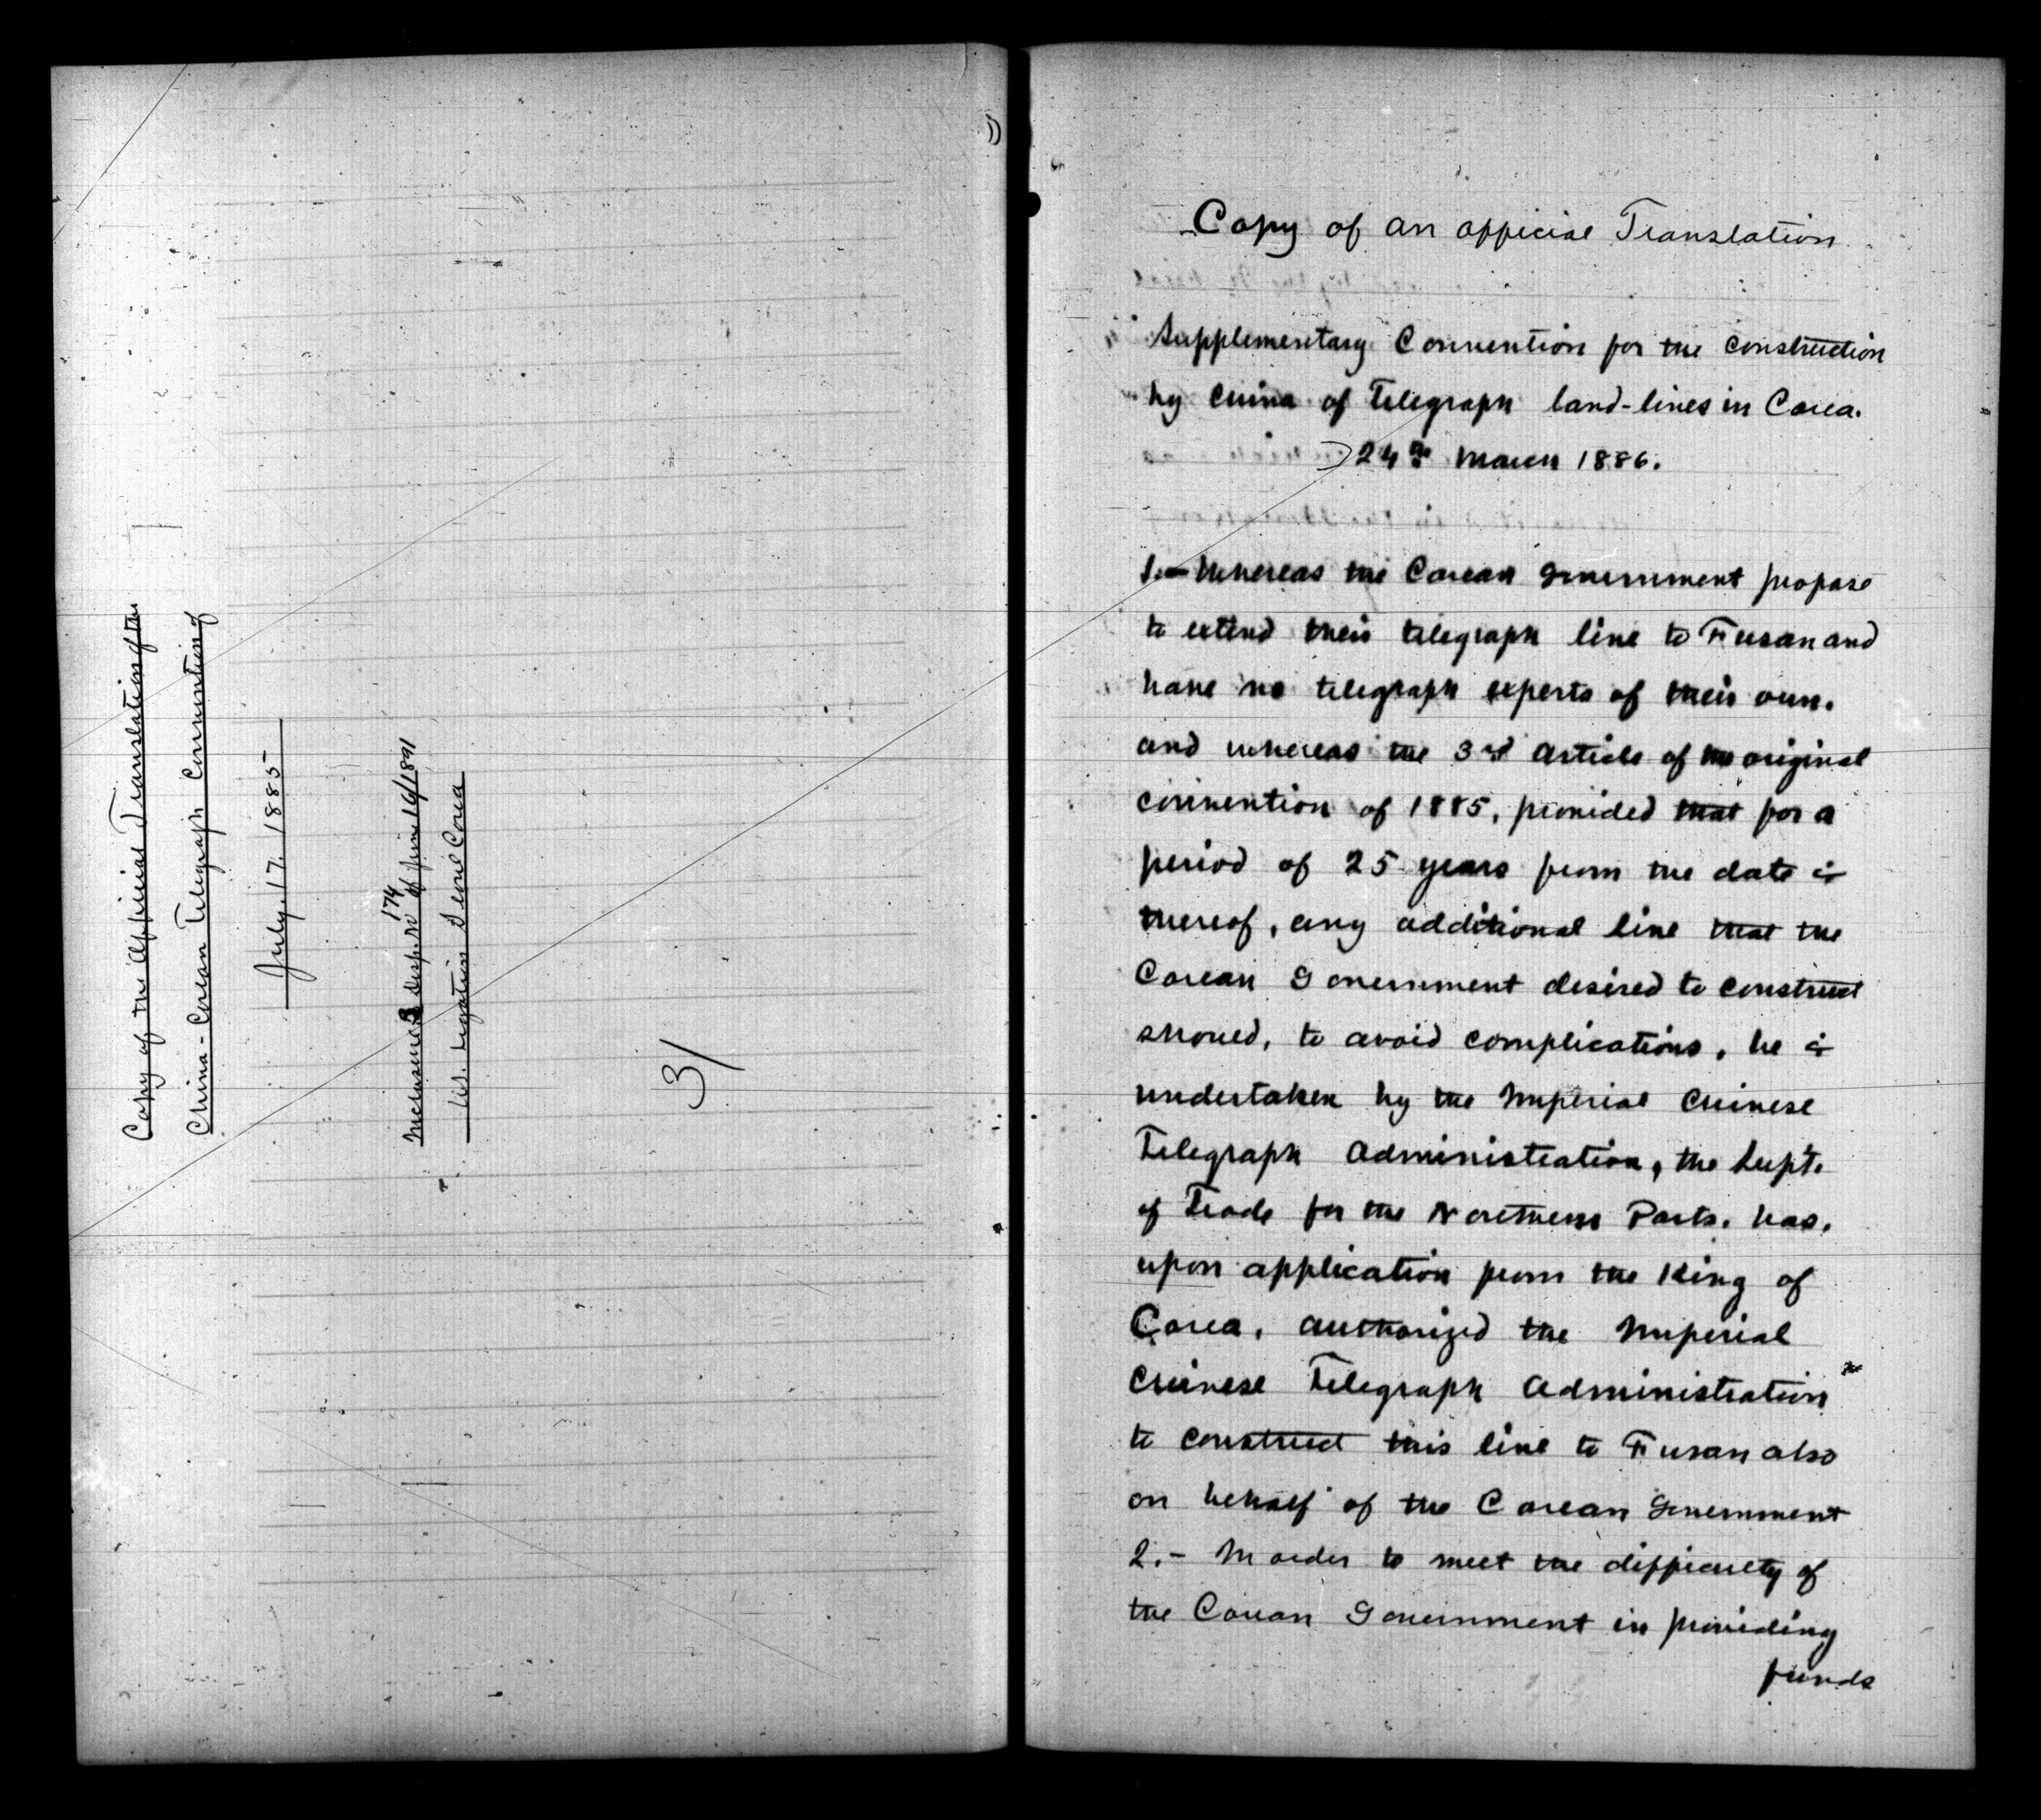 Copy of the Official Translation of the
China-Corean Telegraph Convention of
July. 17. 1885
Inclosure 3 Desp. No 174 of June 16/1891
U.S. Legation Seoul Corea
31
Copy of an official Translation
Supplementary Convention for the construction
by China of Telegraph land-lines in Corea.
24th March 1886.
1.- Whereas the Corean Government propose
to extend their telegraph line to Fusan and
have no telegraph experts of their own.
and whereas the 3rd article of the original
convention of 1885, provided that for a
period of 25 years from the date
thereof, any additional line that the
Corean Government desired to construct
should, to avoid complications, be
undertaken by the Imperial Chinese
Telegraph Administration, the Supt.
of Trade for the Northern Ports, has,
upon application from the King of
Corea, authorized the Imperial
Chinese Telegraph Administration
to construct this line to Fusan also
on behalf of the Corean Government
2.- In order to meet the difficulty of
the Corean Government in providing
funds